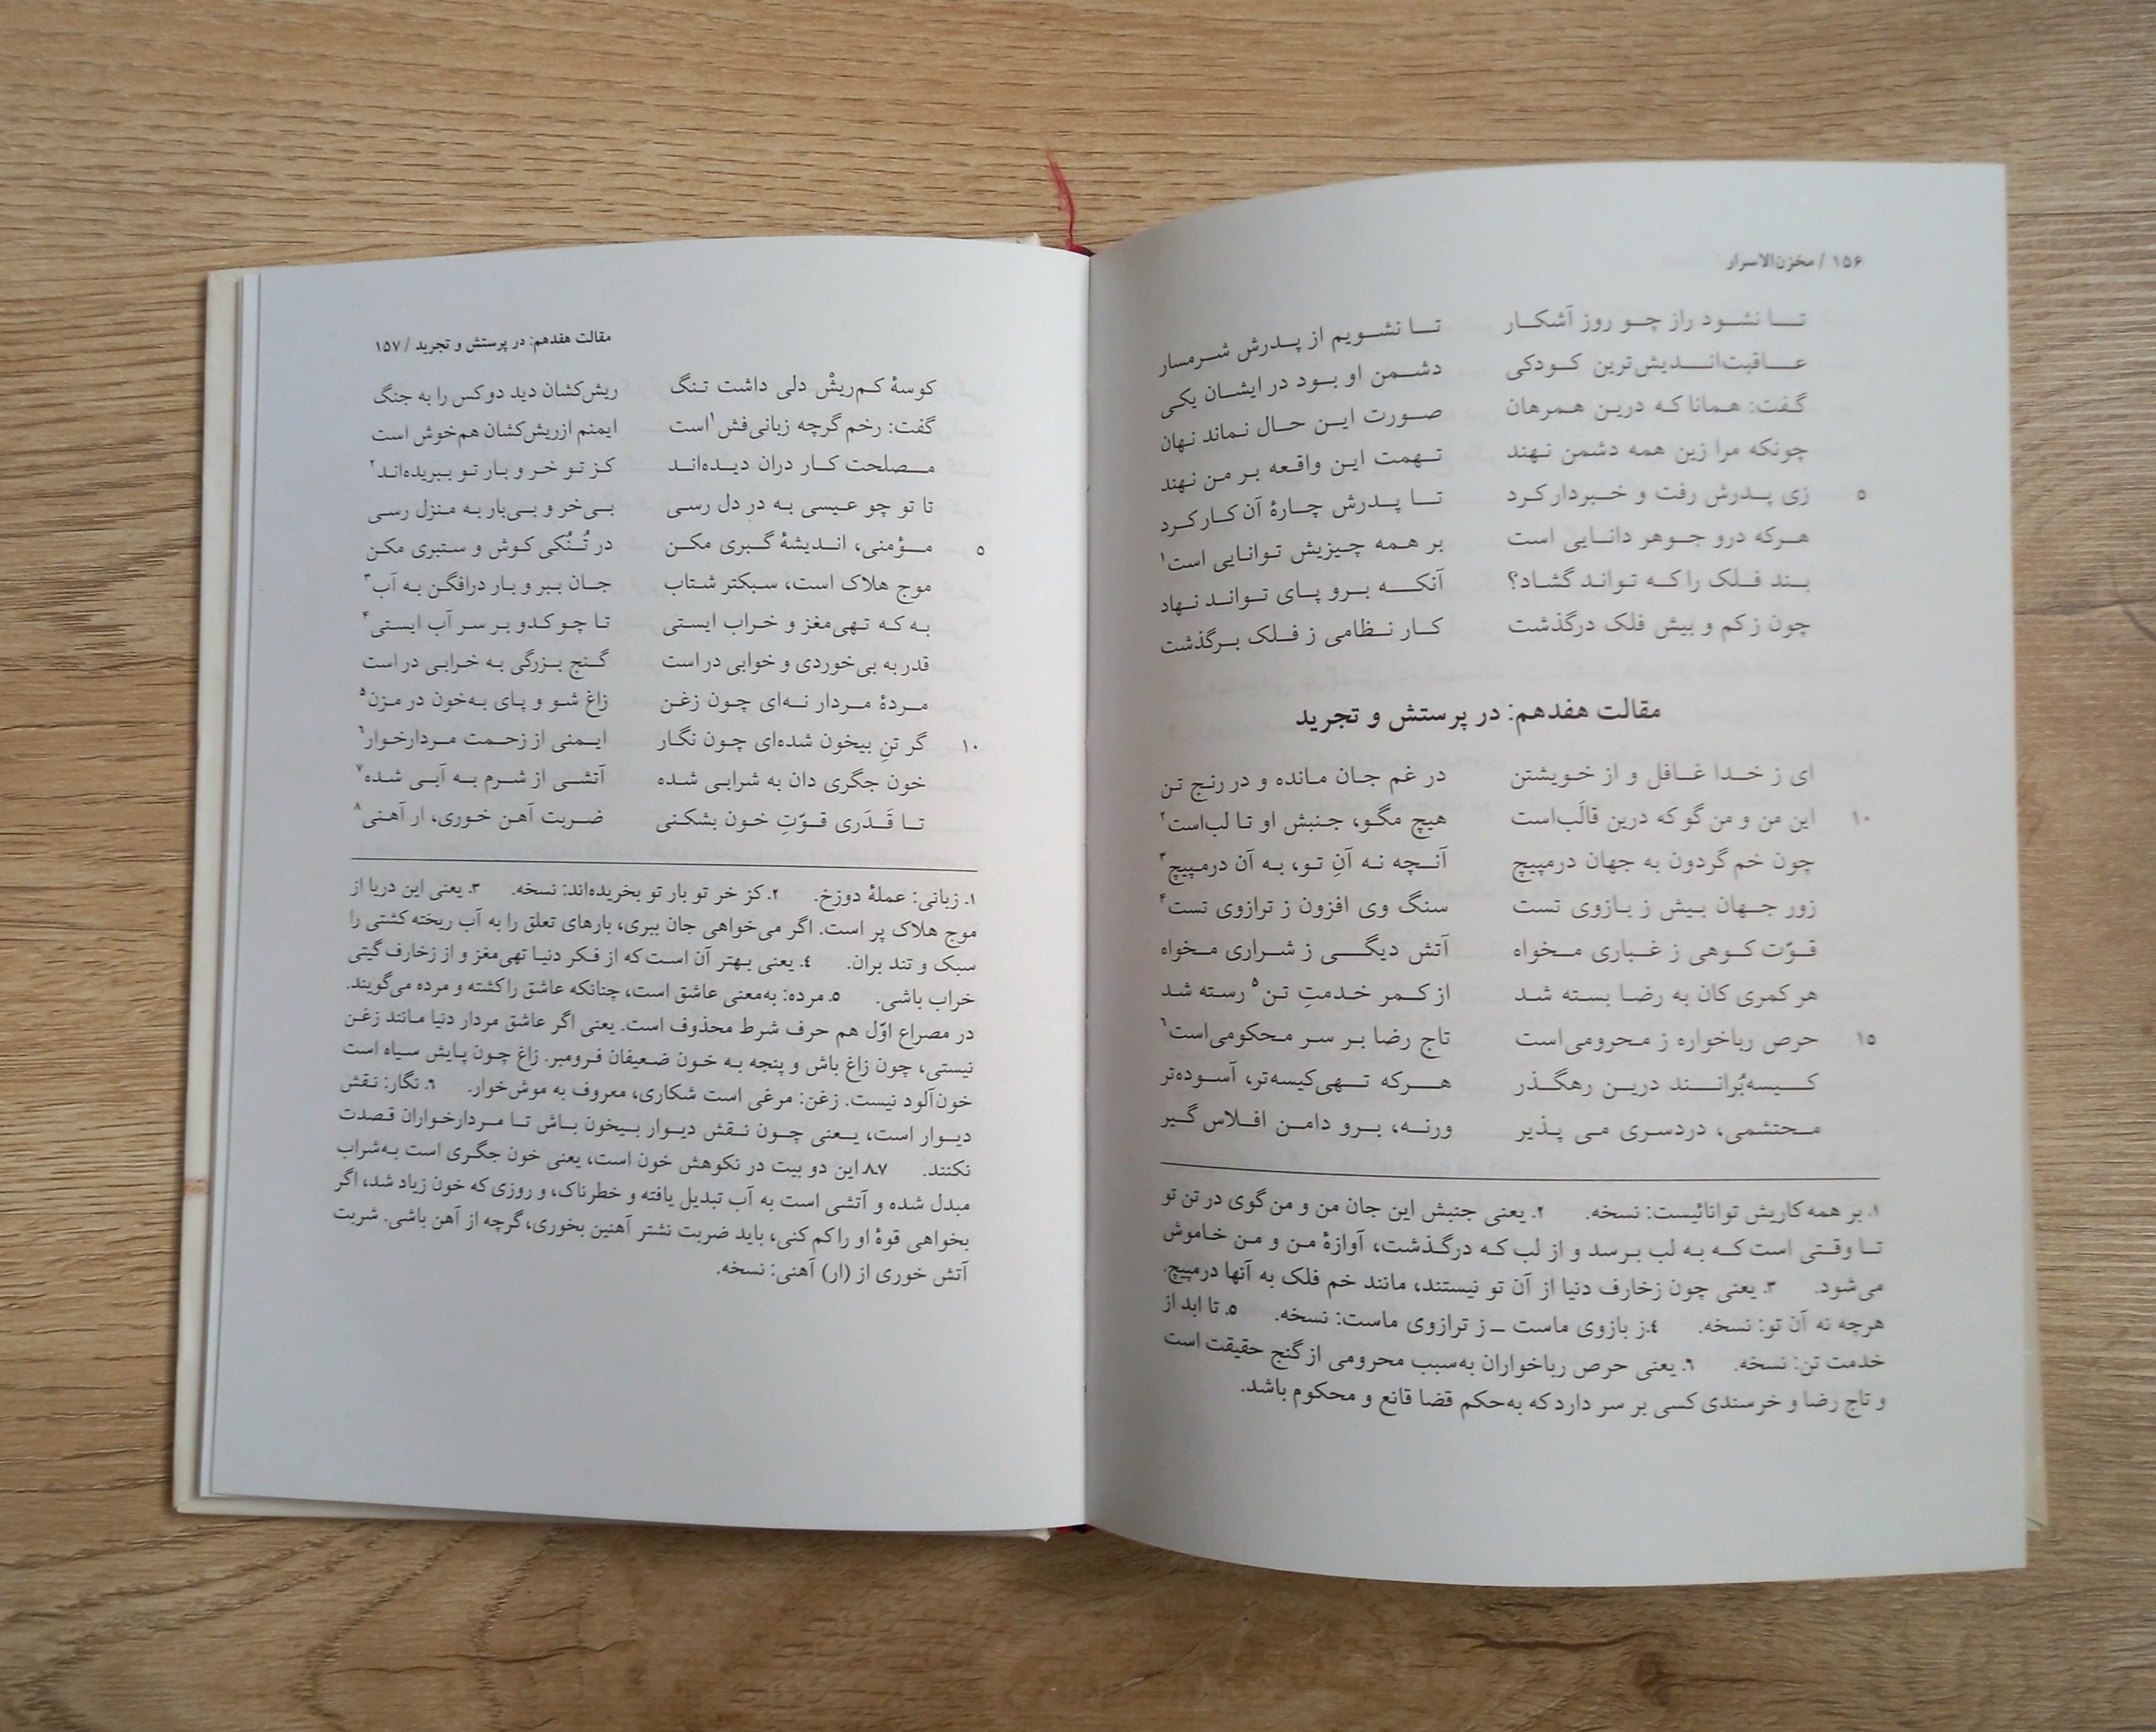 ۱۵۶ / مخزن‌الاسرار
تا نشود راز چو روز آشکار تا نشویم از پدرش شرمسار
عاقبت‌اندیش‌ترین کودکی دشمن او بود در ایشان یکی
گفت: همانا که درین همرهان صورت این حال نماند نهان
چونکه مرا زین همه دشمن نهند تهمت این واقعه بر من نهند
۵ زی پدرش رفت و خبردار کرد تا پدرش چارهٔ آن کار کرد
هرکه درو جوهر دانایی است بر همه چیزیش توانایی است۱
بند فلک را که تواند گشاد؟ آنکه برو پای تواند نهاد
چون ز کم و بیش فلک درگذشت کار نظامی ز فلک برگذشت
مقالت هفدهم: در پرستش و تجرید
ای ز خدا غافل و از خویشتن در غم جان مانده و در رنج تن
۱۰ این من و من گو که درین قالَب است هیچ مگو، جنبش او تا لب است۲
چون خم گردون به جهان درمپیچ آنچه نه آنِ تو، به آن درمپیچ۳
زور جهان بیش ز بازوی تست سنگ وی افزون ز ترازوی تست۴
قوّت کوهی ز غباری مخواه آتش دیگی ز شراری مخواه
هر کمری کان به رضا بسته شد از کمر خدمتِ تن۵ رسته شد
۱۵ حرص رباخواره ز محرومی است تاج رضا بر سر محکومی است۶
کیسه‌بُرانند درین رهگذر هرکه تهی‌کیسه‌تر، آسوده‌تر
محتشمی، دردسری می پذیر ورنه، برو دامن افلاس گیر
۱. بر همه کاریش توانائیست: نسخه. ۲. یعنی جنبش این جان من و من گوی در تن تو
تا وقتی است که به لب برسد و از لب که درگذشت، آوازهٔ من و من خاموش
می‌شود. ۳. یعنی چون زخارف دنیا از آن تو نیستند، مانند خم فلک به آنها درمپیچ.
هرچه نه آن تو: نسخه. ۴. ز بازوی ماست ــ ز ترازوی ماست: نسخه. ۵. تا ابد از
خدمت تن: نسخه. ۶. یعنی حرص رباخواران به‌سبب محرومی از گنج حقیقت است
و تاج رضا و خرسندی کسی بر سر دارد که به‌حکم قضا قانع و محکوم باشد.
مقالت هفدهم: در پرستش و تجرید / ۱۵۷
کوسهٔ کم‌ریشْ دلی داشت تنگ ریش‌کشان دید دو کس را به جنگ
گفت: رخم گرچه زبانی‌فش۱ است ایمنم از ریش‌کشان هم خوش است
مصلحت کار دران دیده‌اند کز تو خر و بار تو ببریده‌اند۲
تا تو چو عیسی به در دل رسی بی‌خر و بی‌بار به منزل رسی
۵ مؤمنی، اندیشهٔ گبری مکن در تُنُکی کوش و ستبری مکن
موج هلاک است، سبکتر شتاب جان ببر و بار درافگن به آب۳
به که تهی‌مغز و خراب ایستی تا چو کدو بر سر آب ایستی۴
قدر به بی‌خوردی و خوابی در است گنج بزرگی به خرابی در است
مردهٔ مردار نه‌ای چون زغن زاغ شو و پای به‌خون در مزن۵
۱۰ گر تنِ بیخون شده‌ای چون نگار ایمنی از زحمت مردارخوار۶
خون جگری دان به شرابی شده آتشی از شرم به آبی شده۷
تا قَدَری قوّتِ خون بشکنی ضربت آهن خوری، ار آهنی۸
۱. زبانی: عملهٔ دوزخ. ۲. کز خر تو بار تو بخریده‌اند: نسخه. ۳. یعنی این دریا از
موج هلاک پر است. اگر می‌خواهی جان ببری، بارهای تعلق را به آب ریخته کشتی را
سبک و تند بران. ۴. یعنی بهتر آن است که از فکر دنیا تهی‌مغز و از زخارف گیتی
خراب باشی. ۵. مرده: به‌معنی عاشق است، چنانکه عاشق را کشته و مرده می‌گویند.
در مصراع اوّل هم حرف شرط محذوف است. یعنی اگر عاشق مردار دنیا مانند زغن
نیستی، چون زاغ باش و پنجه به خون ضعیفان فرومبر. زاغ چون پایش سیاه است
خون‌آلود نیست. زغن: مرغی است شکاری، معروف به موش‌خوار. ۶. نگار: نقش
دیوار است، یعنی چون نقش دیوار بیخون باش تا مردارخواران قصدت
نکنند. ۸،۷. این دو بیت در نکوهش خون است، یعنی خون جگری است به‌شراب
مبدل شده و آتشی است به آب تبدیل یافته و خطرناک، و روزی که خون زیاد شد، اگر
بخواهی قوهٔ او را کم کنی، باید ضربت نشتر آهنین بخوری، گرچه از آهن باشی. شربت
آتش خوری از (ار) آهنی: نسخه.